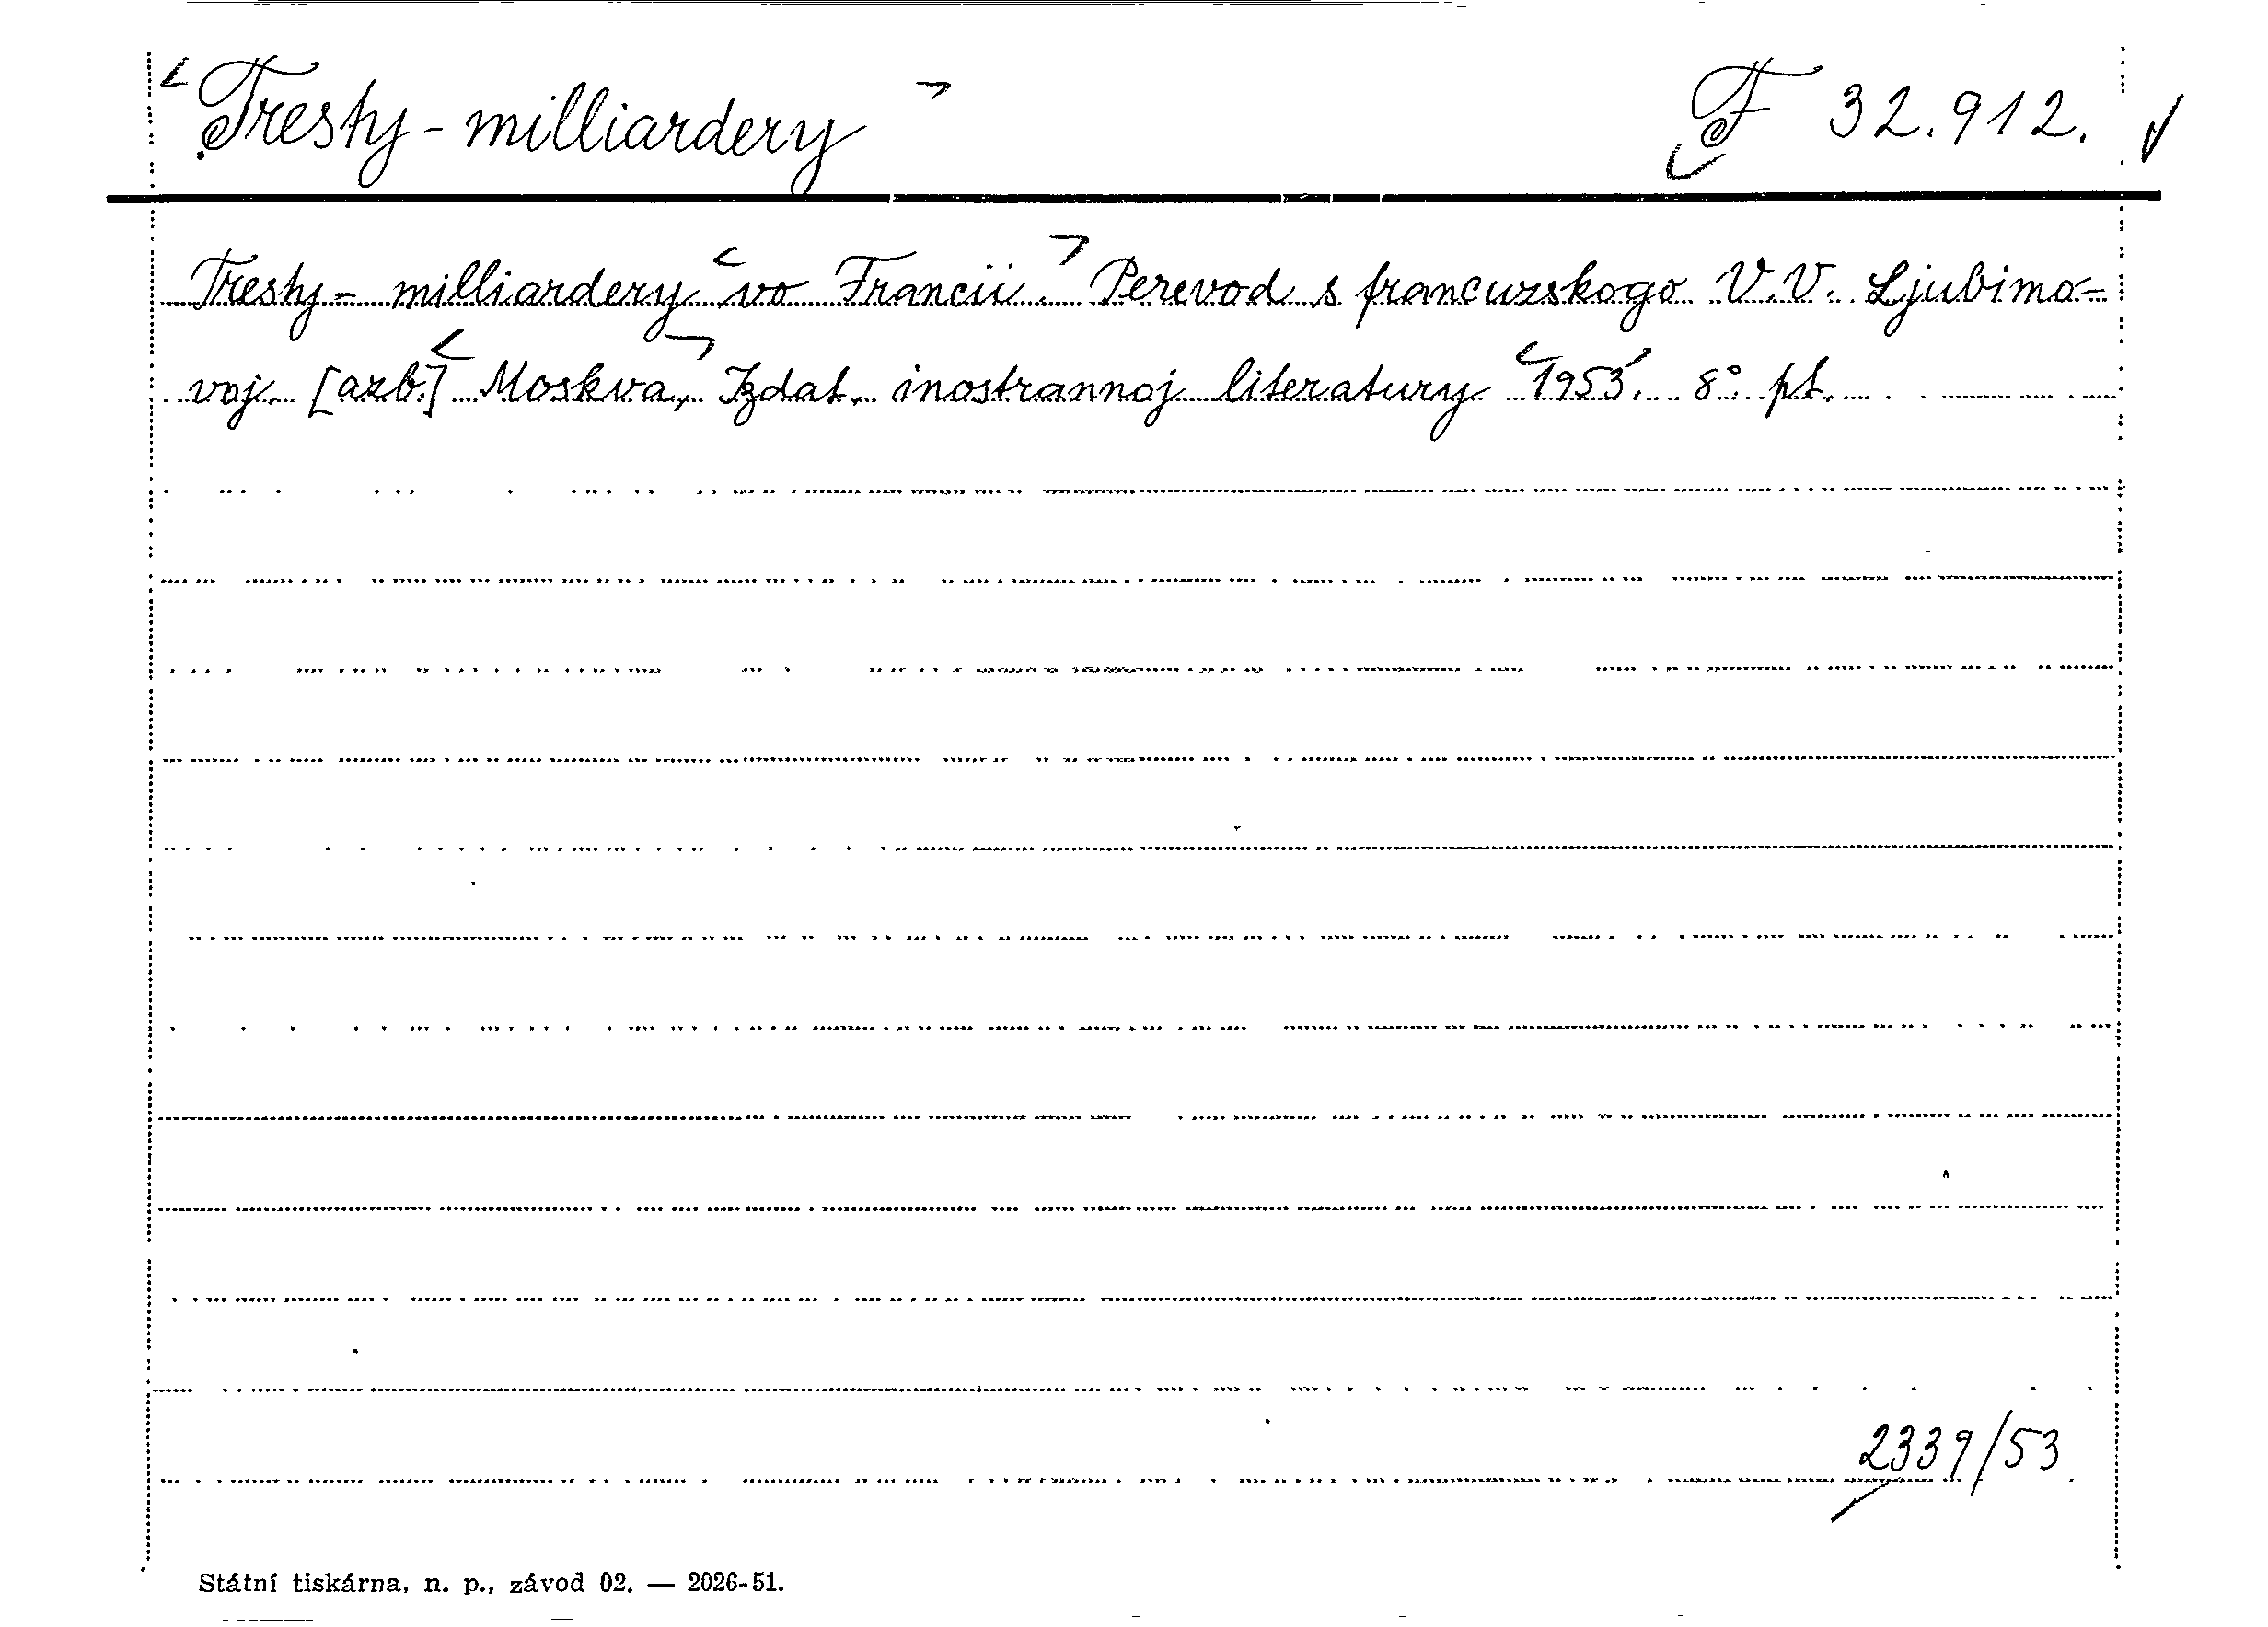 Tresty - milliardery F 32.912.
Tresty - milliardery vo Francii. Perevod s francuzskogo V.V. Ljubimo-
voj. [azb.] Moskva, Izdat. inostrannoj literatury 1953. 8° pt.
2339/53
Státní tiskárna, n. p., závod 02. — 2026-51.